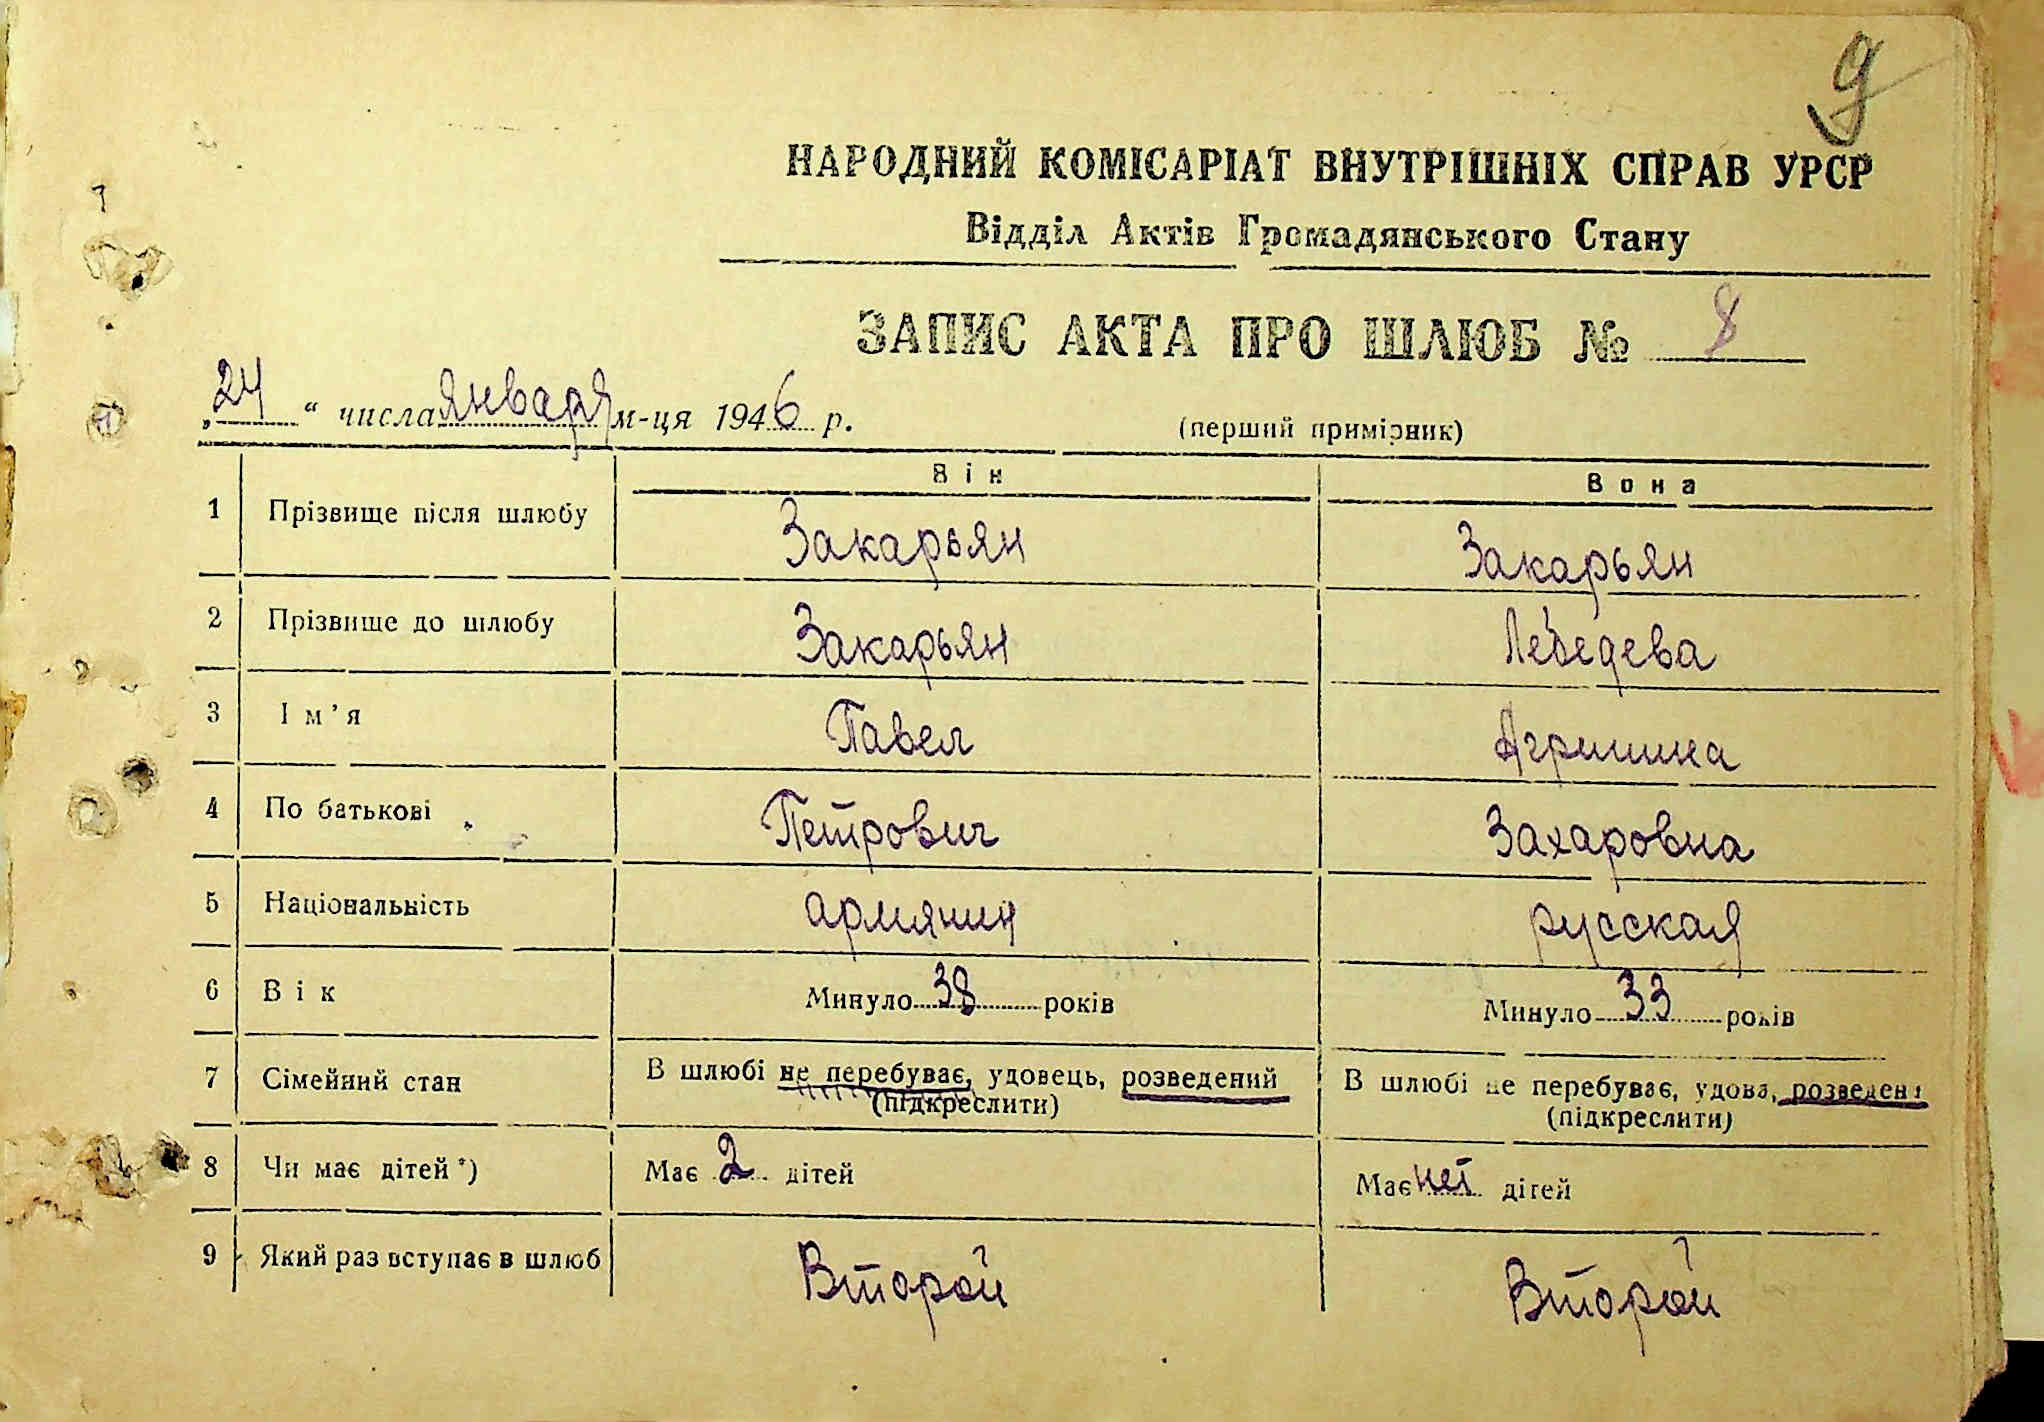 9
НАРОДНИЙ КОМІСАРІАТ ВНУТРІШНІХ СПРАВ УРСР
Відділ Актів Громадянського Стану
ЗАПИС АКТА ПРО ШЛЮБ № 8
„24“ числа января м-ця 1946 р. (перший примірник)
Він Вона
1 Прізвище після шлюбу Закарьян Закарьян
2 Прізвище до шлюбу Закарьян Лебедева
3 Ім'я Павел Агрипина
4 По батькові Петрович Захаровна
5 Національність армянин русская
6 Вік Минуло 38 років Минуло 33 років
7 Сімейний стан В шлюбі не перебуває, удовець, розведений В шлюбі не перебуває, удова, розведена
(підкреслити) (підкреслити)
8 Чи має дітей*) Має 2 дітей Має нет дітей
9 Який раз вступає в шлюб Второй Второй